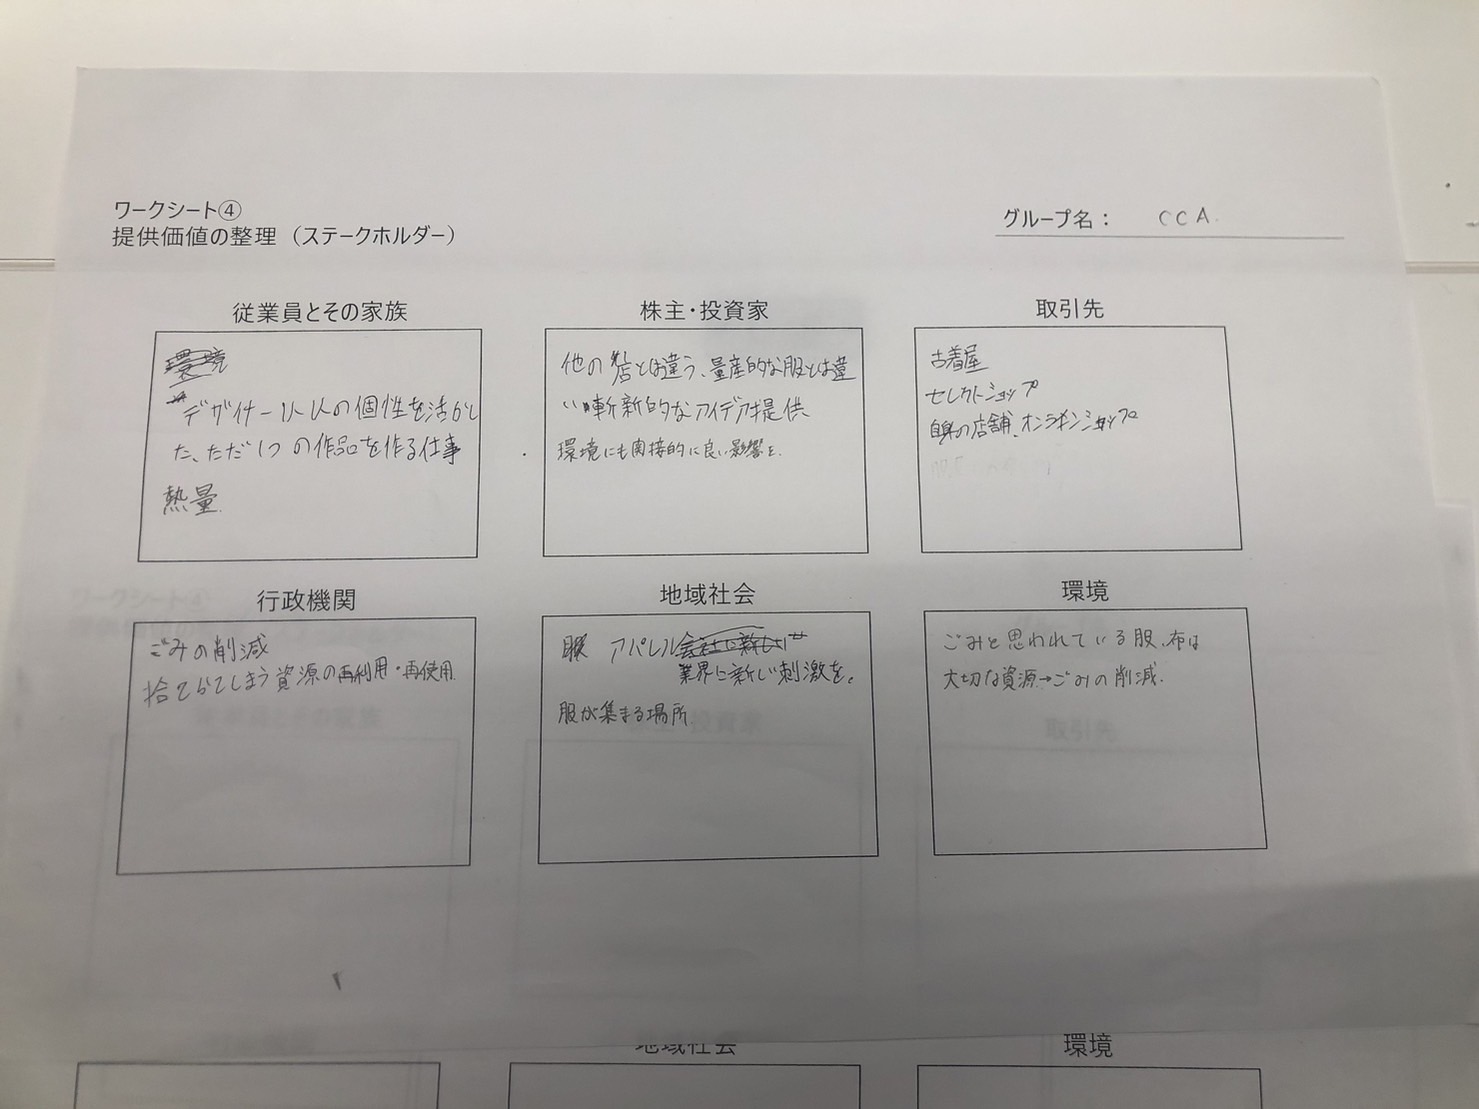 ワークシート④
提供価値の整理（ステークホルダー）
グループ名： CCA.
従業員とその家族
環境
デザイナー1人1人の個性を活かし
た、ただ1つの作品を作る仕事
熱量.
株主・投資家
他の店とは違う、量産的な服とは違
い斬新的なアイデア提供、
環境にも間接的に良い影響を.
取引先
古着屋
セレクトショップ
自身の店舗、オンラインショップ
行政機関
ごみの削減
捨てらてしまう資源の再利用・再使用
地域社会
アパレル会社に新しい
業界に新しい刺激を。
服が集まる場所
環境
ごみと思われている服、布は
大切な資源→ごみの削減.
ワークシート④
従業員とその家族
株主・投資家
取引先
地域社会
環境